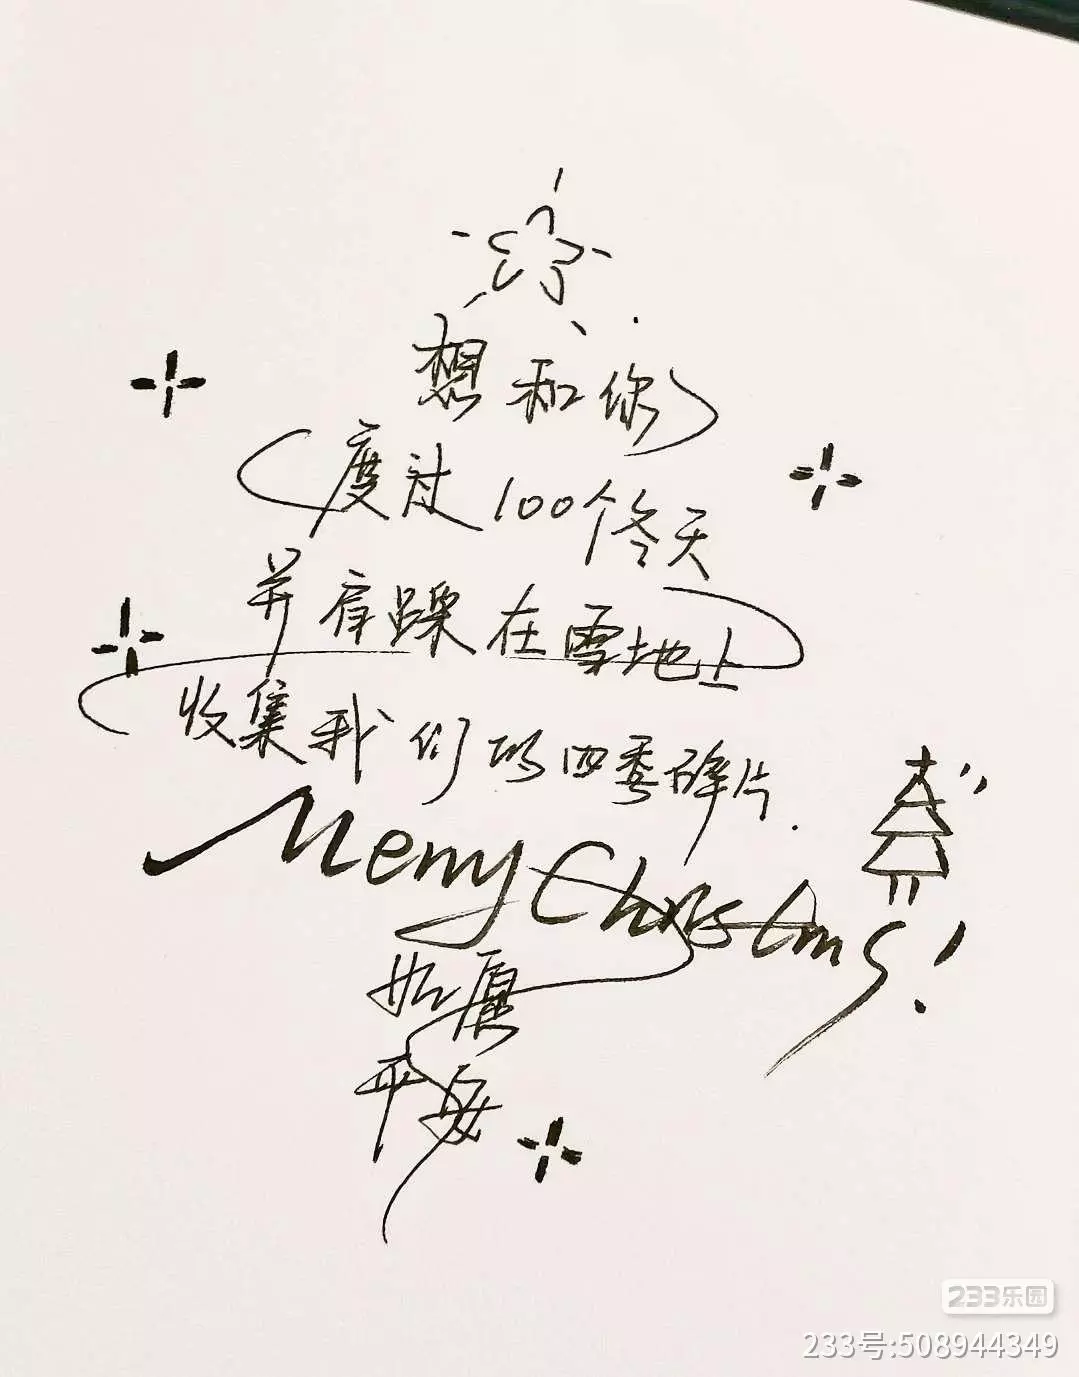 想和你
度过100个冬天
并肩踩在雪地上
收集我们的四季碎片.
Merry Christmas!
如愿
平安
233乐园
233号:508944349